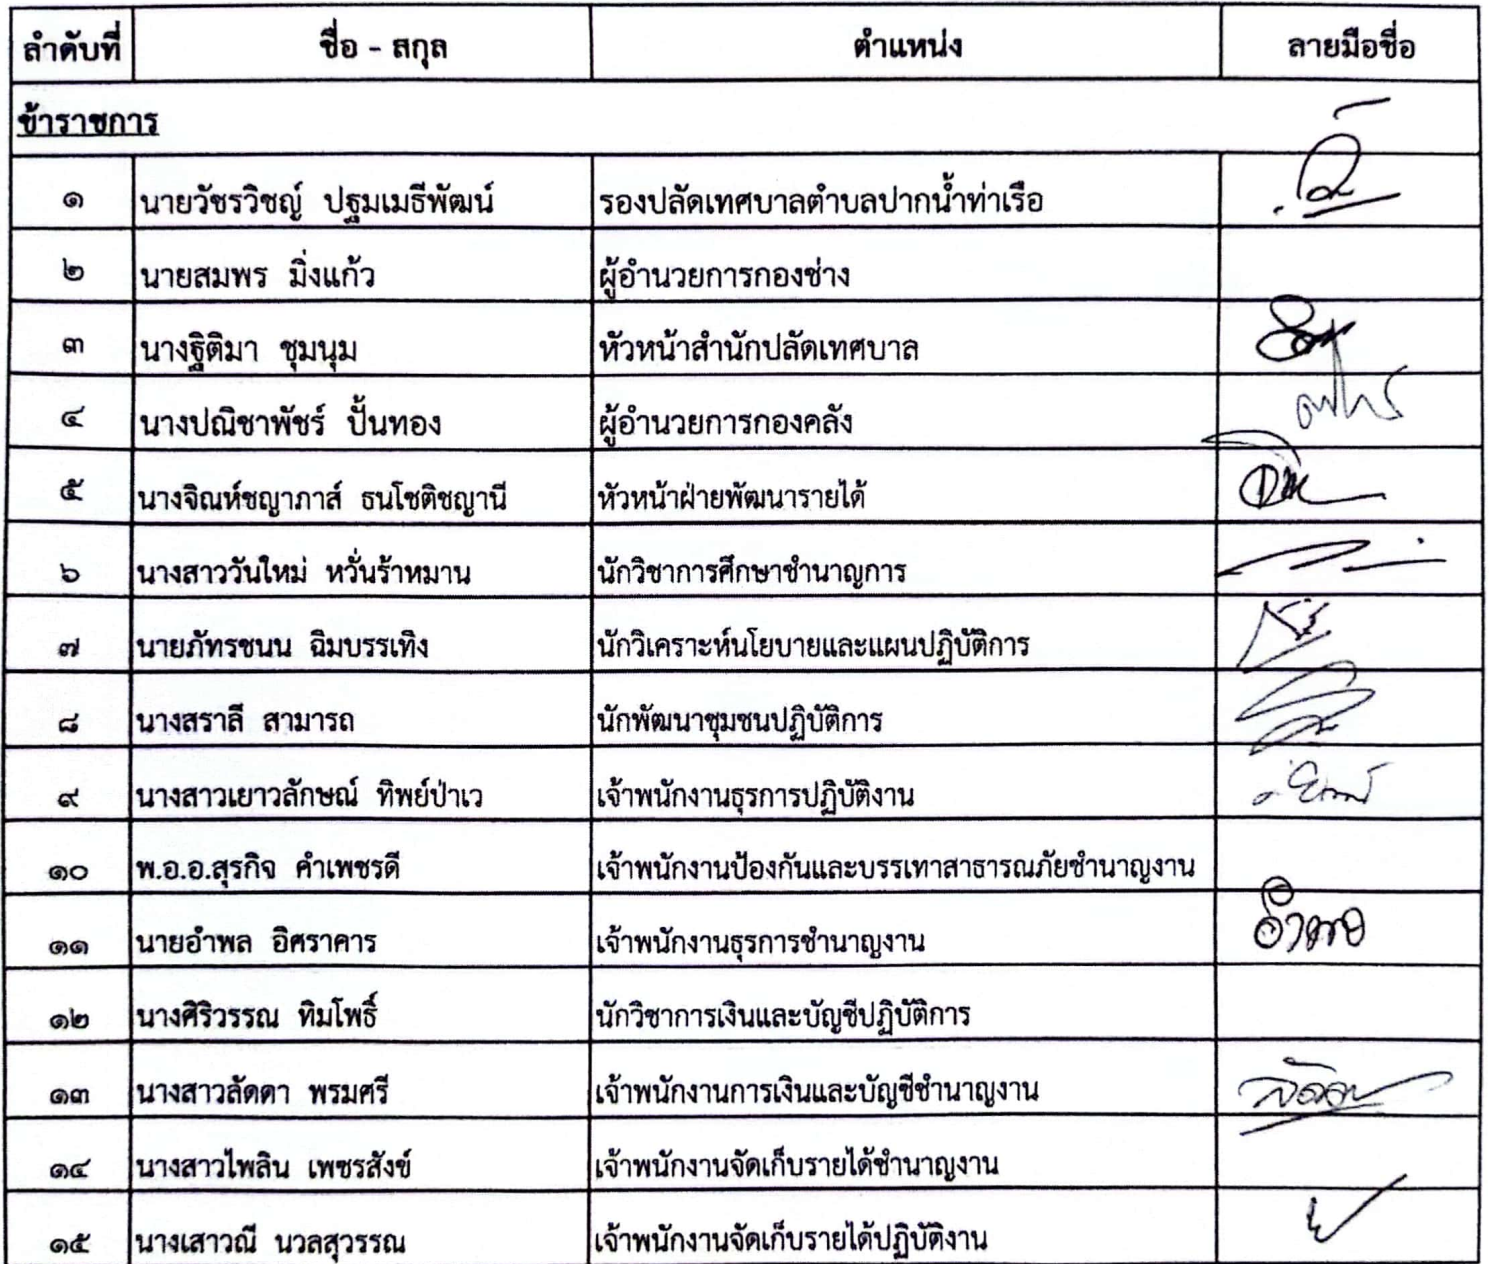 ลำดับที่ ชื่อ - สกุล ตำแหน่ง ลายมือชื่อ
ข้าราชการ
๑ นายวัชรวิชญ์ ปฐมเมธีพัฒน์ รองปลัดเทศบาลตำบลปากน้ำท่าเรือ
๒ นายสมพร มิ่งแก้ว ผู้อำนวยการกองช่าง
๓ นางฐิติมา ชุมนุม หัวหน้าสำนักปลัดเทศบาล
๔ นางปณิชาพัชร์ ปั้นทอง ผู้อำนวยการกองคลัง
๕ นางจิณห์ชญาภาส์ ธนโชติชญานี หัวหน้าฝ่ายพัฒนารายได้
๖ นางสาววันใหม่ หวั่นร้าหมาน นักวิชาการศึกษาชำนาญการ
๗ นายภัทรชนน ฉิมบรรเทิง นักวิเคราะห์นโยบายและแผนปฏิบัติการ
๘ นางสราลี สามารถ นักพัฒนาชุมชนปฏิบัติการ
๙ นางสาวเยาวลักษณ์ ทิพย์ป่าเว เจ้าพนักงานธุรการปฏิบัติงาน
๑๐ พ.อ.อ.สุรกิจ คำเพชรดี เจ้าพนักงานป้องกันและบรรเทาสาธารณภัยชำนาญงาน
๑๑ นายอำพล อิศราคาร เจ้าพนักงานธุรการชำนาญงาน อำพล
๑๒ นางศิริวรรณ ทิมโพธิ์ นักวิชาการเงินและบัญชีปฏิบัติการ
๑๓ นางสาวลัดดา พรมศรี เจ้าพนักงานการเงินและบัญชีชำนาญงาน ลัดดา
๑๔ นางสาวไพลิน เพชรสังข์ เจ้าพนักงานจัดเก็บรายได้ชำนาญงาน
๑๕ นางเสาวณี นวลสุวรรณ เจ้าพนักงานจัดเก็บรายได้ปฏิบัติงาน